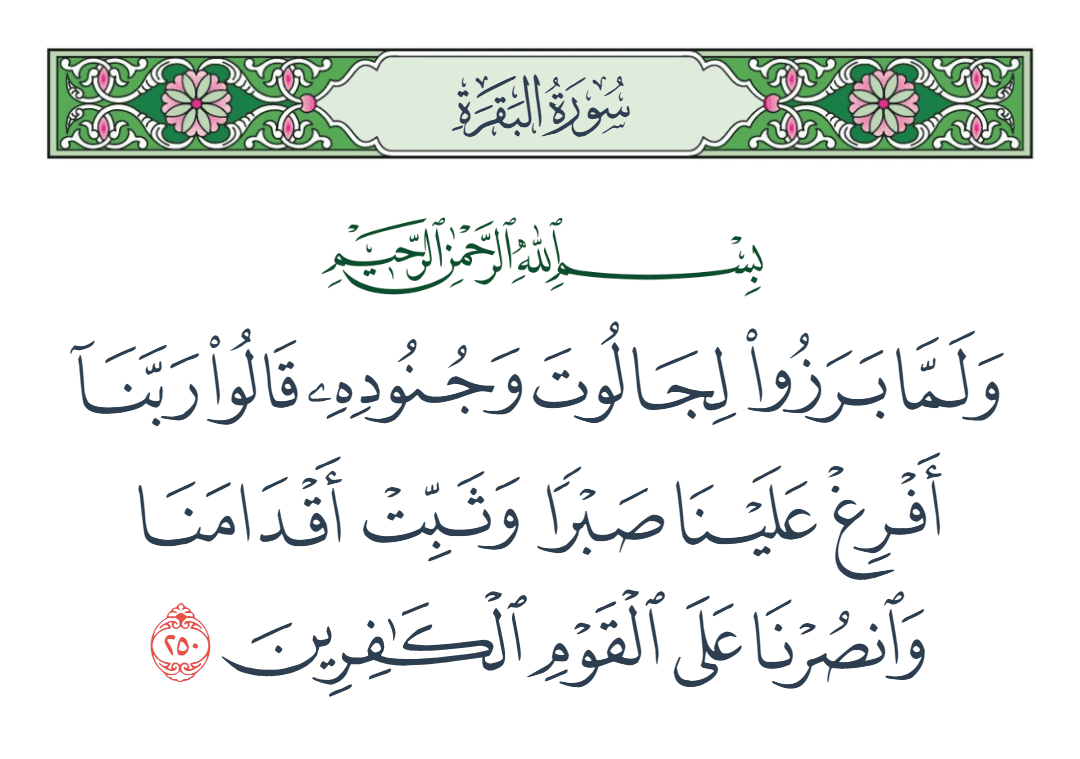 سُورَةُ البَقَرَةِ
بِسْمِ ٱللَّهِ ٱلرَّحْمَٰنِ ٱلرَّحِيمِ
وَلَمَّا بَرَزُوا۟ لِجَالُوتَ وَجُنُودِهِۦ قَالُوا۟ رَبَّنَآ
أَفْرِغْ عَلَيْنَا صَبْرًا وَثَبِّتْ أَقْدَامَنَا
وَٱنصُرْنَا عَلَى ٱلْقَوْمِ ٱلْكَٰفِرِينَ ٢٥٠